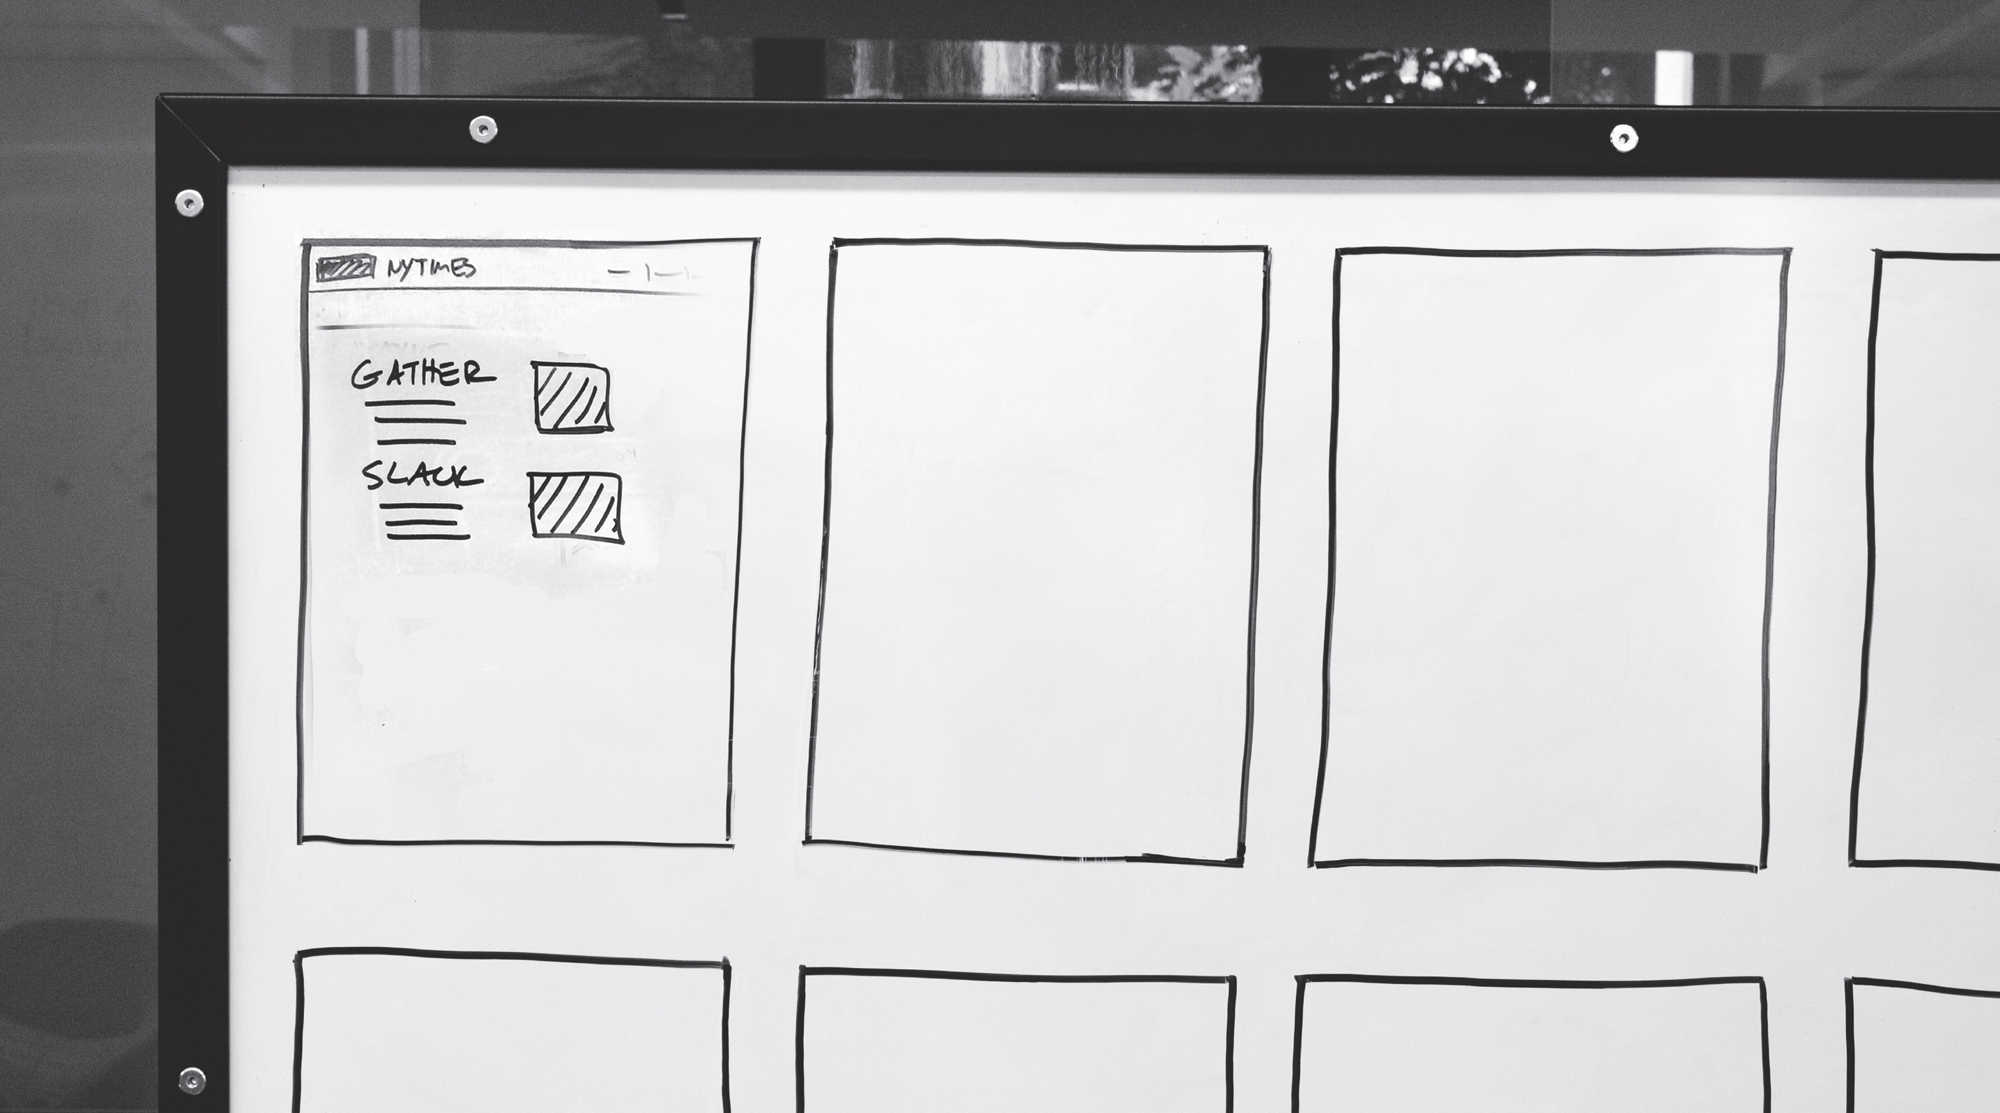 NYTIMES
GATHER
SLACK